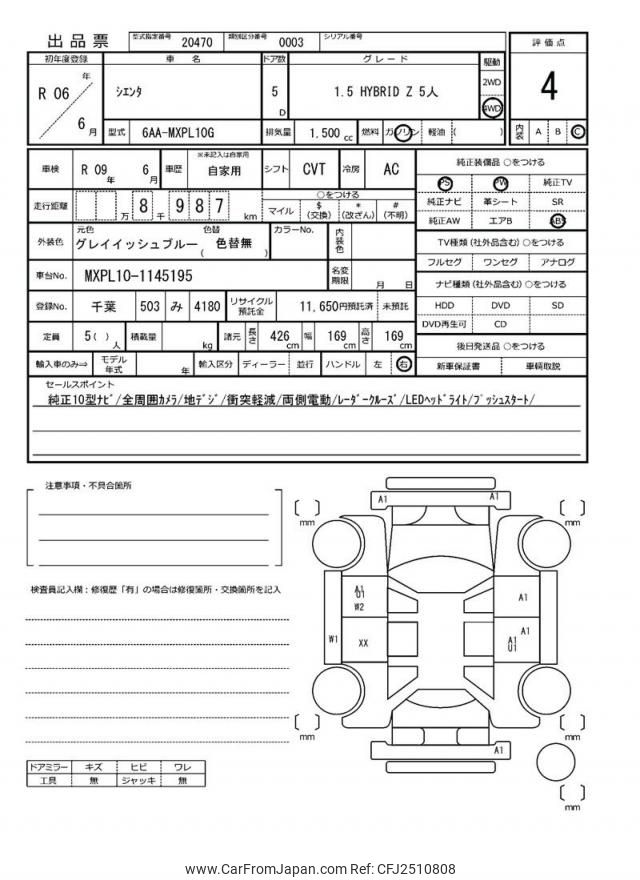 出品票 型式指定番号 20470 類別区分番号 0003 シリアル番号
初年度登録 車名 ドア数 グレード 駆動 評価点
R 06 年 6 月 シエンタ 5 D 1.5 HYBRID Z 5人 2WD 4WD 4
型式 6AA-MXPL10G 排気量 1,500 cc 燃料 ガソリン 軽油 ( ) 内装 A B C
車検 R 09 年 6 月 車歴 ※未記入は自家用 自家用 シフト CVT 冷房 AC 純正装備品 ○をつける
PS PW 純正TV
走行距離 万 8 千 9 8 7 km ○をつける 純正ナビ 革シート SR
マイル $ (交換) * (改ざん) # (不明) 純正AW エアB ABS
外装色 元色 グレイイッシュブルー 色替 ( 色替無 ) カラーNo. 内装色 TV種類 (社外品含む) ○をつける
フルセグ ワンセグ アナログ
車台No. MXPL10-1145195 名変期限 月 日 ナビ種類 (社外品含む) ○をつける
登録No. 千葉 503 み 4180 リサイクル預託金 11,650円預託済 未預託 HDD DVD SD
DVD再生可 CD
定員 5 ( ) 人 積載量 kg 諸元 長さ 426 cm 幅 169 cm 高さ 169 cm 後日発送品 ○をつける
輸入車のみ⇒ モデル年式 年 輸入区分 ディーラー 並行 ハンドル 左 右 新車保証書 車輌取説
セールスポイント
純正10型ナビ/全周囲カメラ/地デジ/衝突軽減/両側電動/レーダークルーズ/LEDヘッドライト/プッシュスタート/
注意事項・不具合箇所
検査員記入欄：修復歴「有」の場合は修復箇所・交換箇所を記入
A1 A1
mm mm
A1 U1 W2 A1
W1 XX A1 A1 U1
mm mm
A1
mm
ドアミラー キズ ヒビ ワレ
工具 無 ジャッキ 無
www.CarFromJapan.com Ref: CFJ2510808